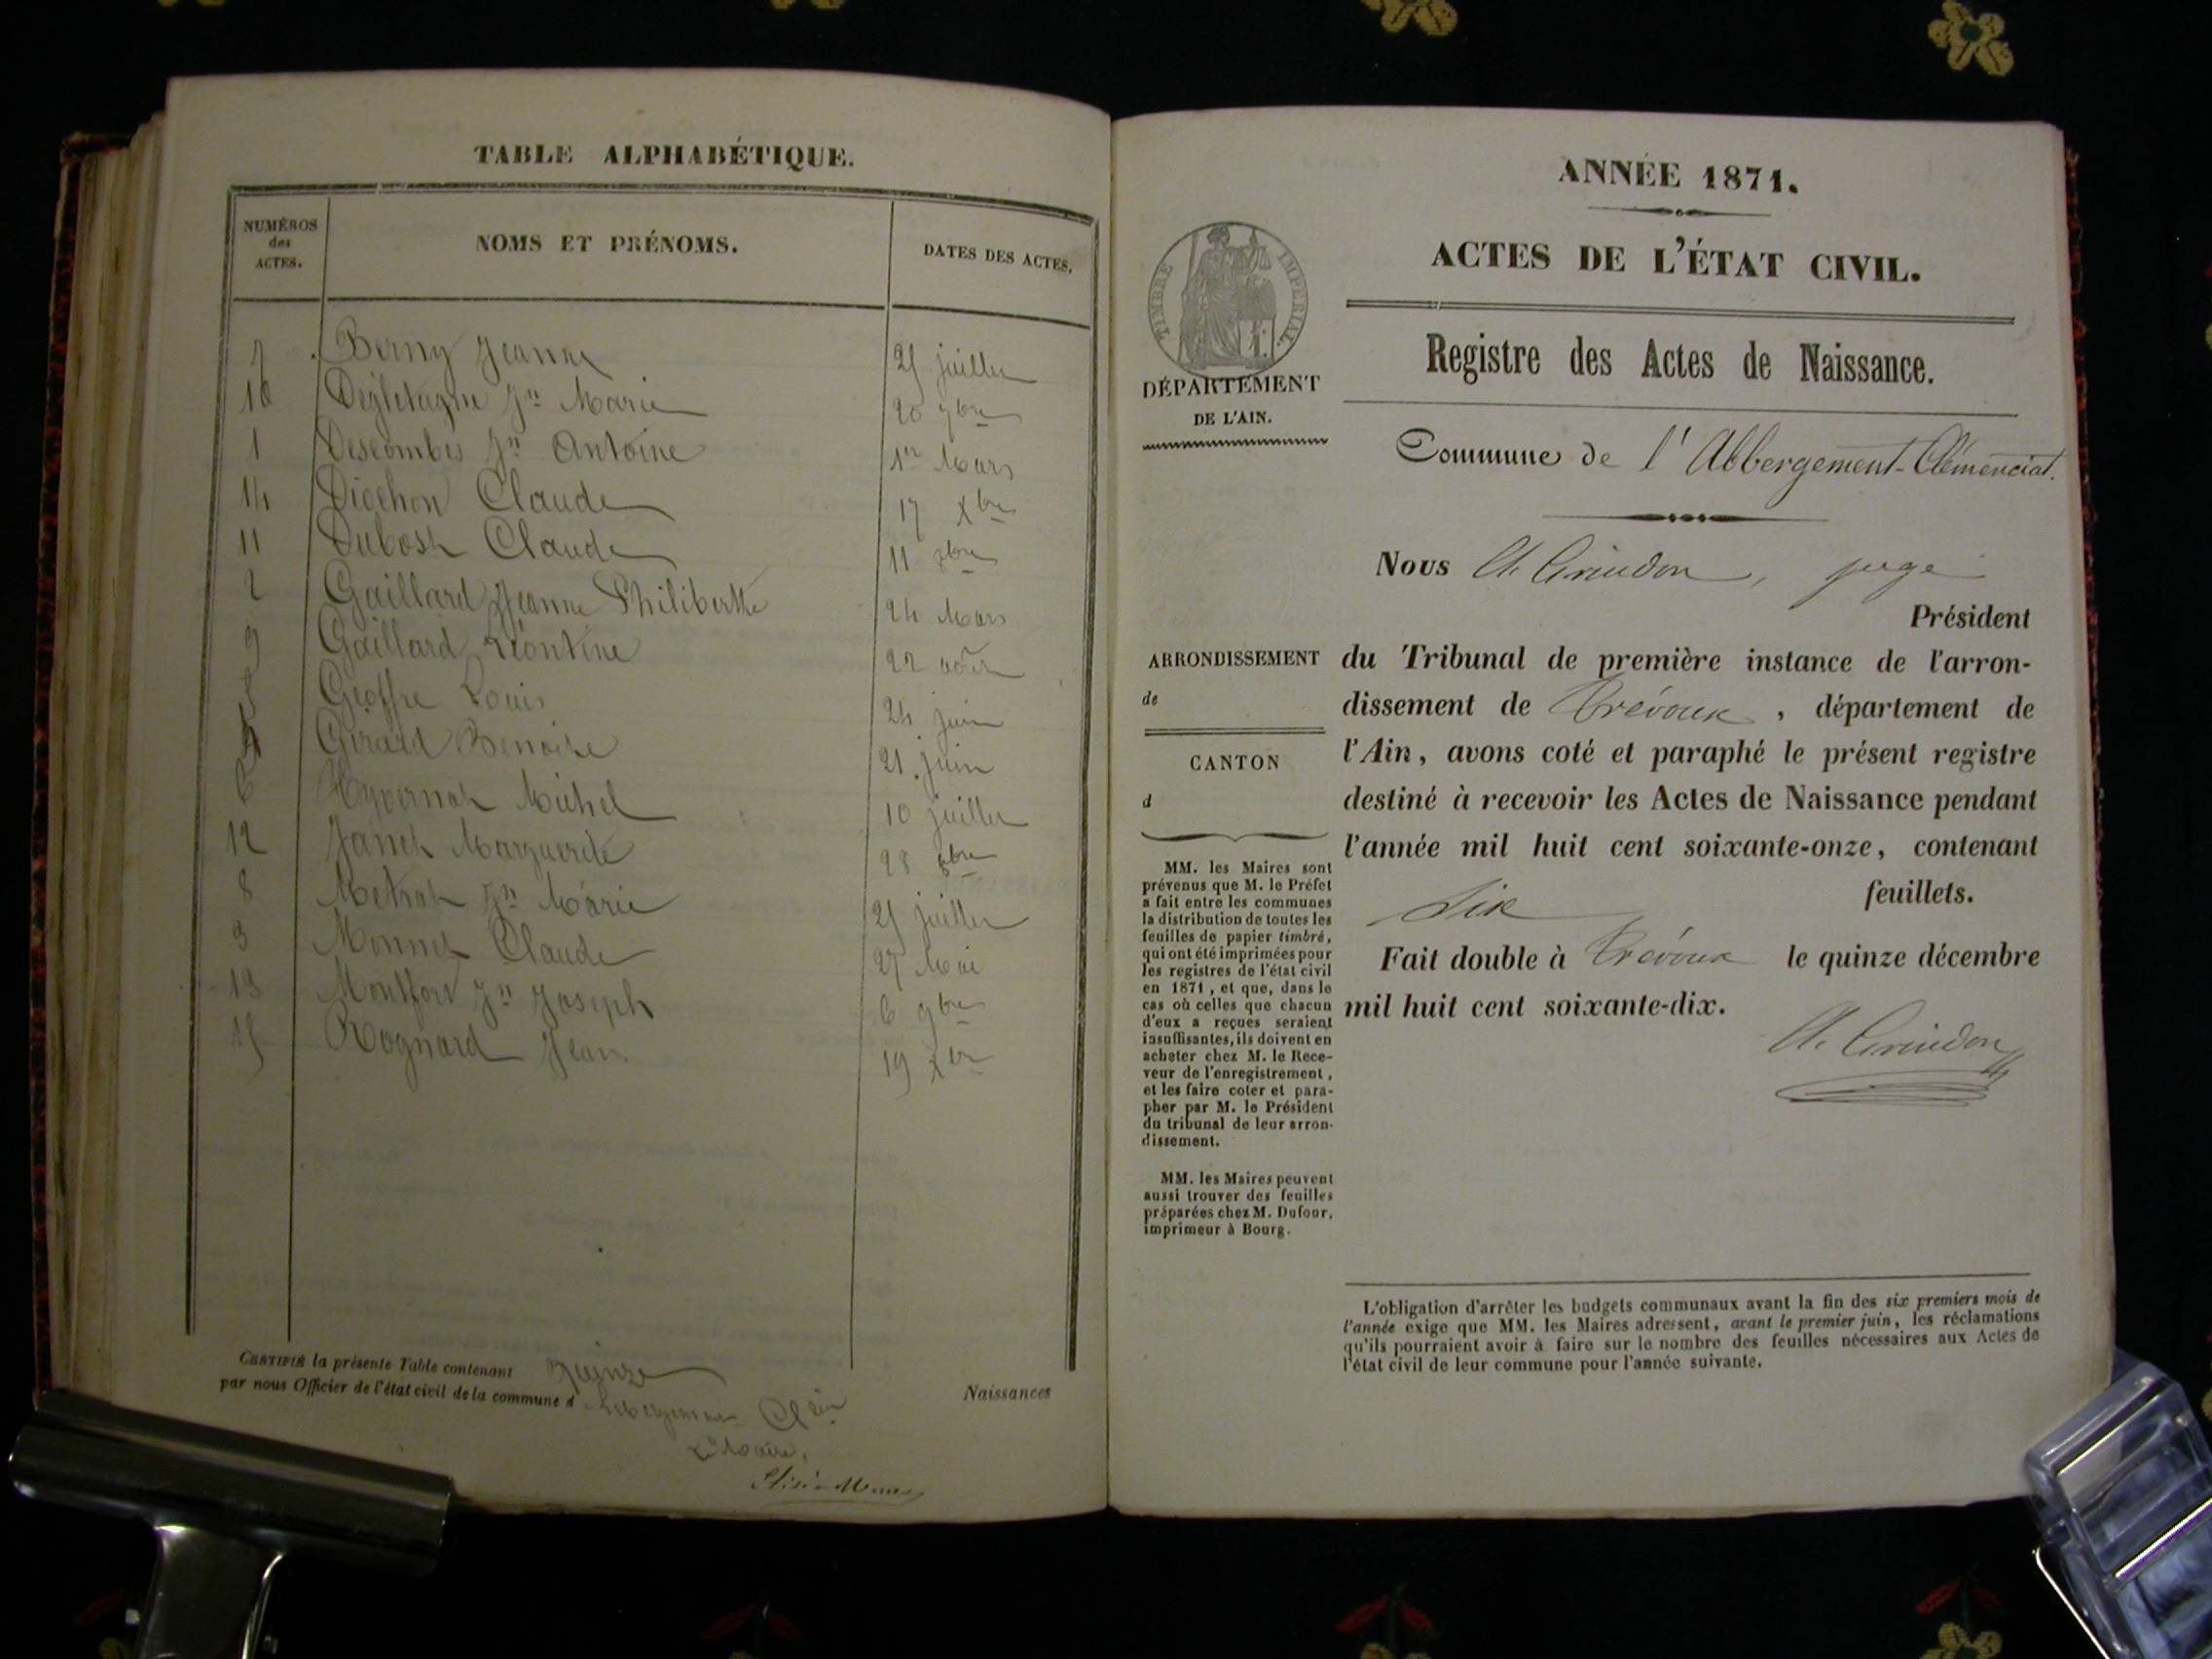 TABLE ALPHABÉTIQUE.
NUMÉROS
des
ACTES.
NOMS ET PRÉNOMS.
DATES DES ACTES.
7 Berny Jeanne 25 juillet
10 Degletagne Jn Marie 20 7bre
1 Descombes Jn Antoine 1er Mars
14 Diochon Claude 17 Xbre
11 Dubost Claude 11 8bre
2 Gaillard Jeanne Philiberthe 24 Mars
9 Gaillard Léontine 22 août
5 Geoffre Louis 24 juin
4 Girard Benoite 21 juin
6 Hyvernat Michel 10 juillet
12 Janet Marguerite 28 8bre
8 Metrat Jn Marie 25 juillet
3 Monnet Claude 27 Mai
13 Montfort Jn Joseph 6 9bre
15 Rognard Jean 19 Xbre
CERTIFIÉ la présente Table contenant quinze Naissances
par nous Officier de l'état civil de la commune d
Le Maire,
ANNÉE 1871.
ACTES DE L'ÉTAT CIVIL.
TIMBRE IMPÉRIAL.
DÉPARTEMENT
DE L'AIN.
Registre des Actes de Naissance.
Commune de l'Abbergement-Clémenciat.
Nous A. Grindon, juge
Président
ARRONDISSEMENT
de
CANTON
d
du Tribunal de première instance de l'arron-
dissement de Trévoux, département de
l'Ain, avons coté et paraphé le présent registre
destiné à recevoir les Actes de Naissance pendant
l'année mil huit cent soixante-onze, contenant
Six feuillets.
Fait double à Trévoux le quinze décembre
mil huit cent soixante-dix.
A. Grindon
MM. les Maires sont
prévenus que M. le Préfet
a fait entre les communes
la distribution de toutes les
feuilles de papier timbré,
qui ont été imprimées pour
les registres de l'état civil
en 1871, et que, dans le
cas où celles que chacun
d'eux a reçues seraient
insuffisantes, ils doivent en
acheter chez M. le Rece-
veur de l'enregistrement,
et les faire coter et para-
pher par M. le Président
du tribunal de leur arron-
dissement.
MM. les Maires peuvent
aussi trouver des feuilles
préparées chez M. Dufour,
imprimeur à Bourg.
L'obligation d'arrêter les budgets communaux avant la fin des six premiers mois de
l'année exige que MM. les Maires adressent, avant le premier juin, les réclamations
qu'ils pourraient avoir à faire sur le nombre des feuilles nécessaires aux Actes de
l'état civil de leur commune pour l'année suivante.